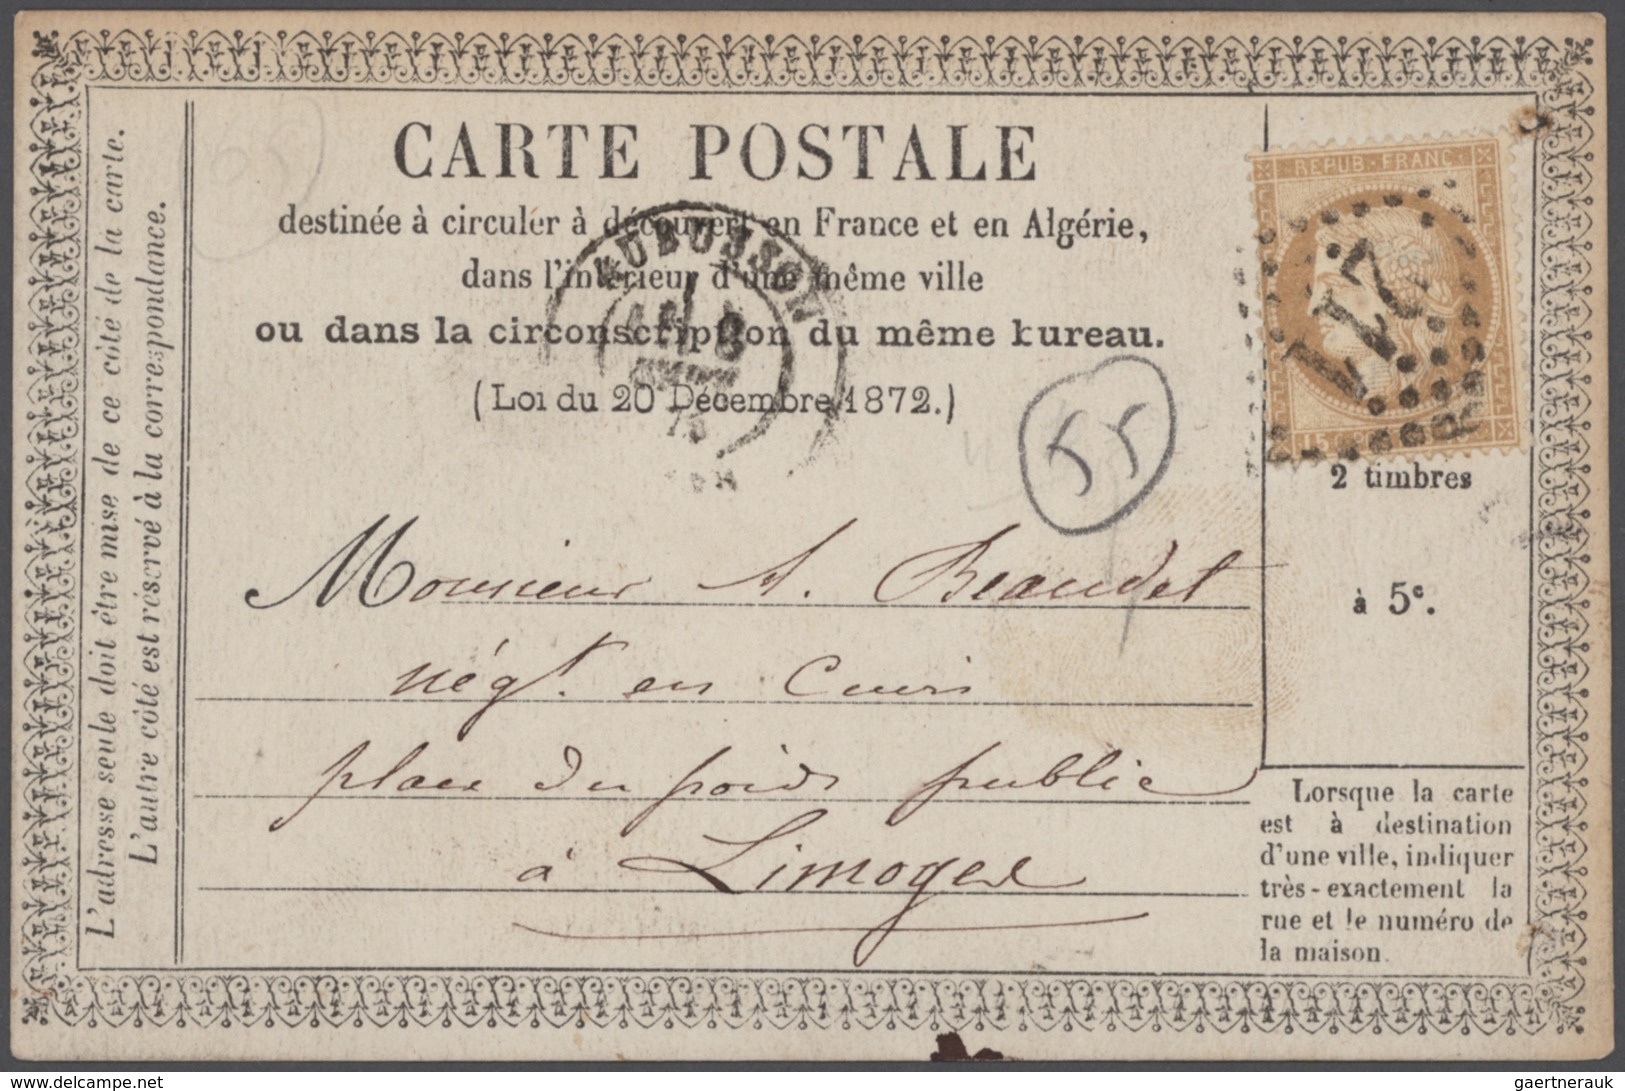 CARTE POSTALE
destinée à circuler à découvert en France et en Algérie,
dans l'intérieur d'une même ville
ou dans la circonscription du même kureau.
(Loi du 20 Décembre 1872.)
AUBUSSON
75
55
65
REPUB. FRANC.
15
217
2 timbres
à 5c.
Monsieur A. Beaudet
négt. en Cuirs
place du poids public
à Limoges
Lorsque la carte
est à destination
d'une ville, indiquer
très-exactement la
rue et le numéro de
la maison.
L'adresse seule doit être mise de ce côté de la carte.
L'autre côté est réservé à la correspondance.
www.delcampe.net
gaertnerauk